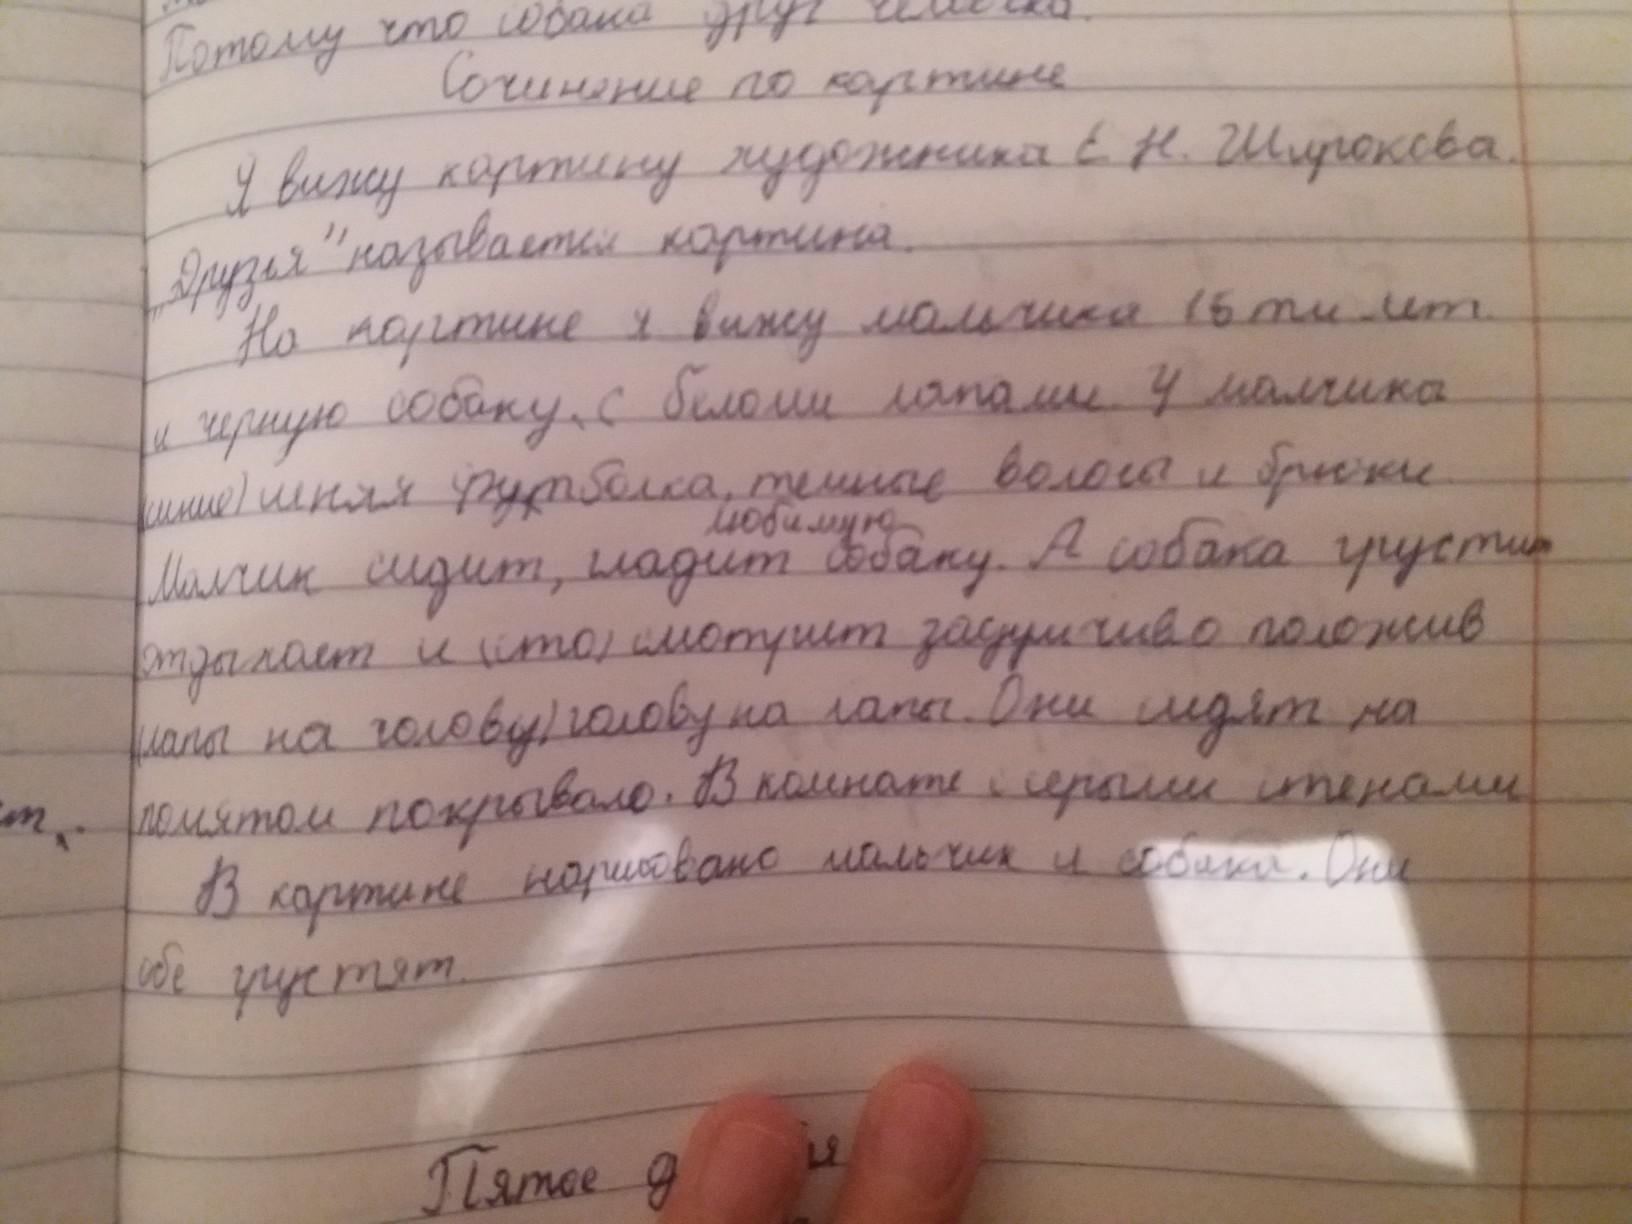 Потому что собака друг человека.
Сочинение по картине
Я вижу картину художника Е Н. Широкова.
„Друзья" называется картина.
На картине я вижу мальчика 15 ти лет
и черную собаку, с белыми лапами У малчика
(синие) синяя футболка, темные волосы и брюки
любимую
Малчик сидит, гладит собаку. А собака грустит
отдыхает и (сто) смотрит задумчиво положив
(лапы на голову) голову на лапы. Они сидят на
помятом покрывало. В комнате с серыми стенами
ет.
В картине нарисовано мальчик и собака. Они
обе грустят.
Пятое